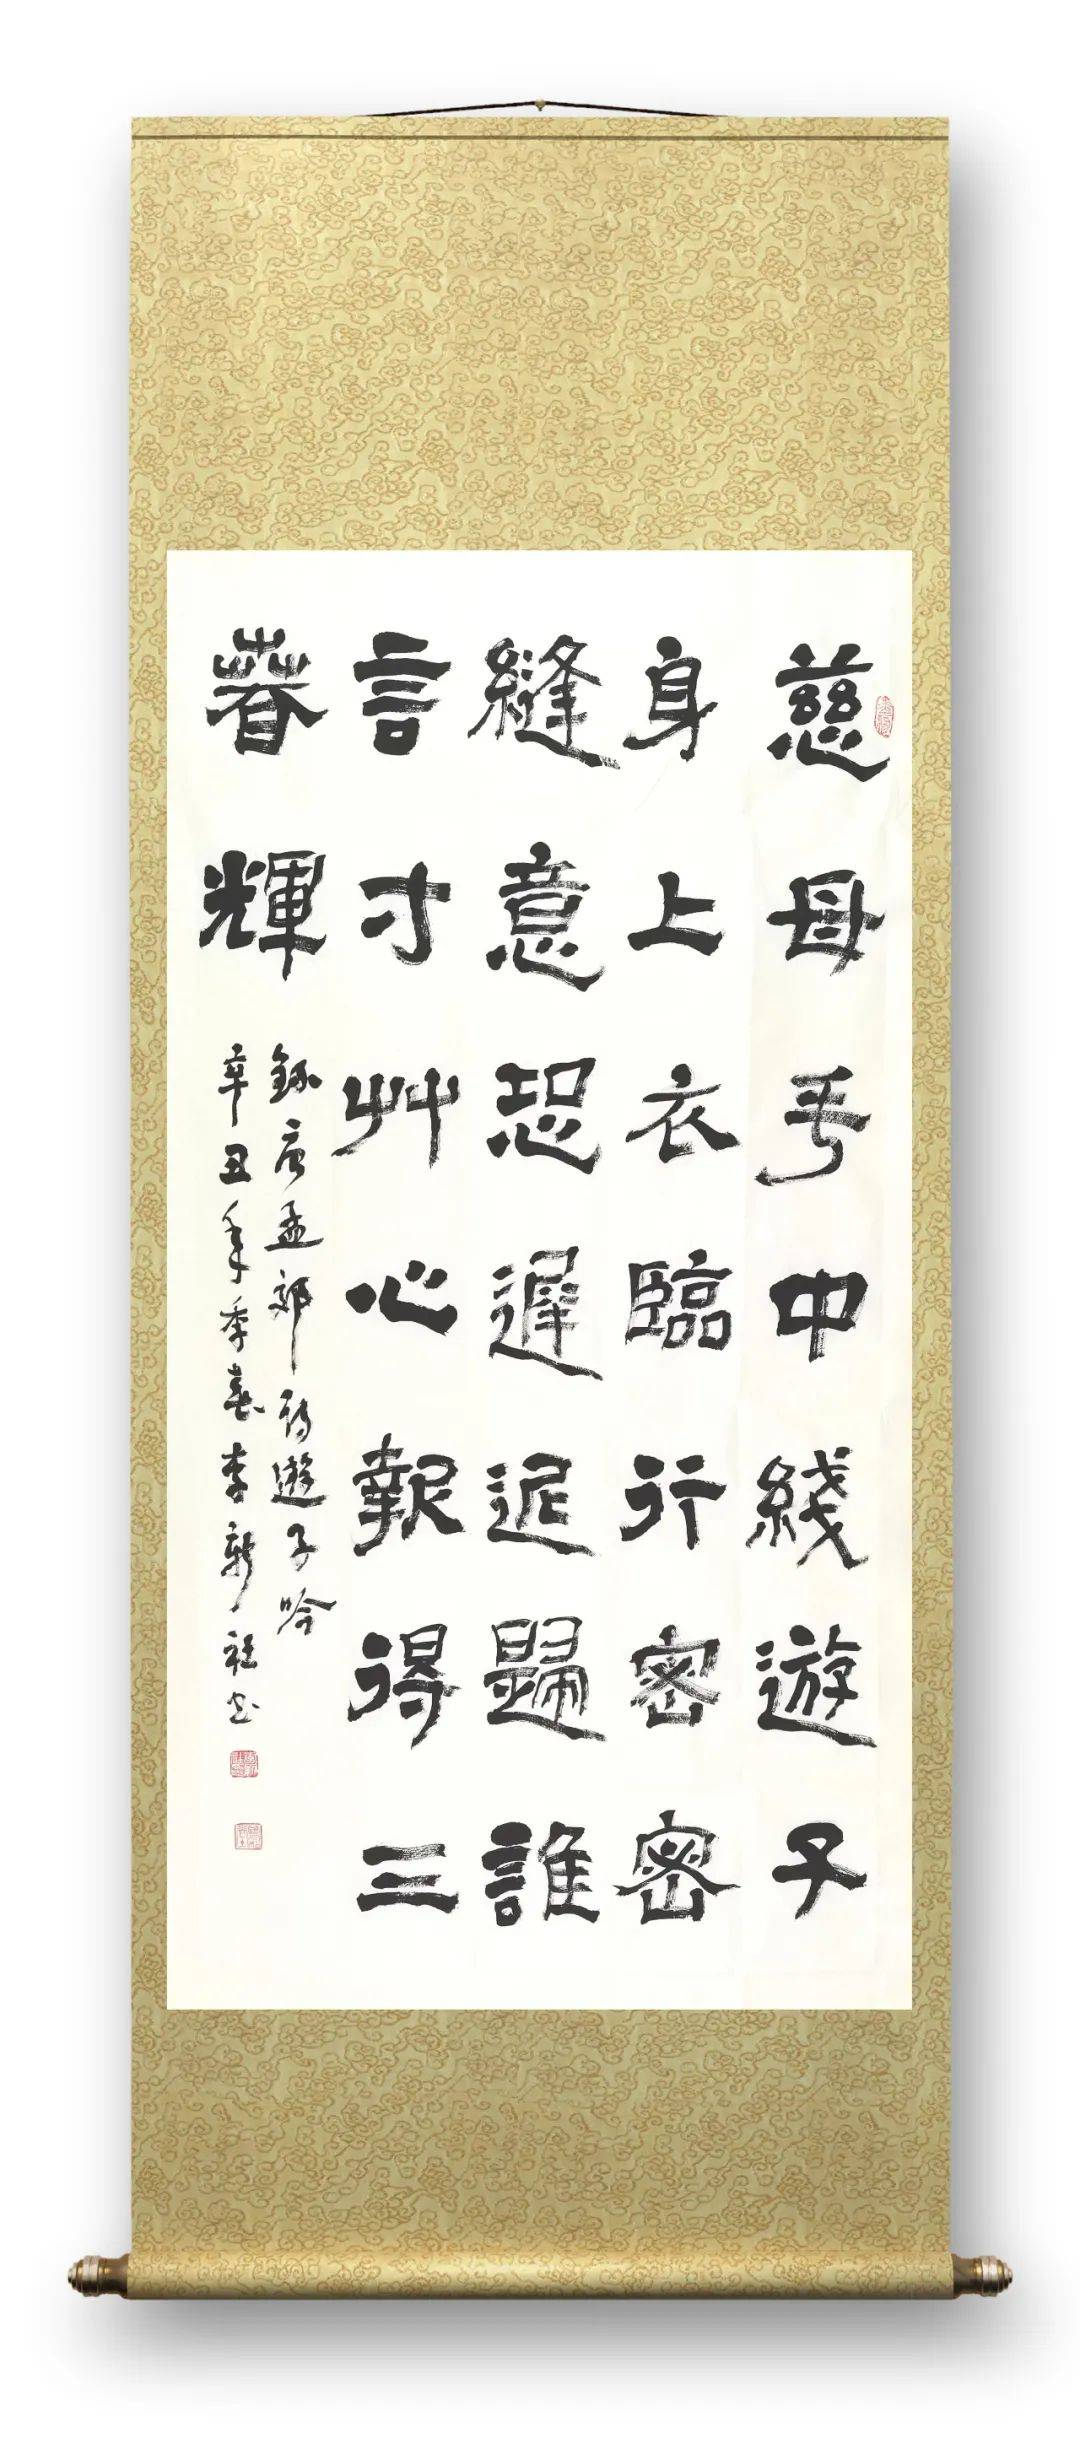 慈母手中綫遊子
身上衣臨行密密
縫意恐遲迡歸誰
言寸艸心報得三
春輝
錄唐孟郊詩遊子吟
辛丑年季春李新社書